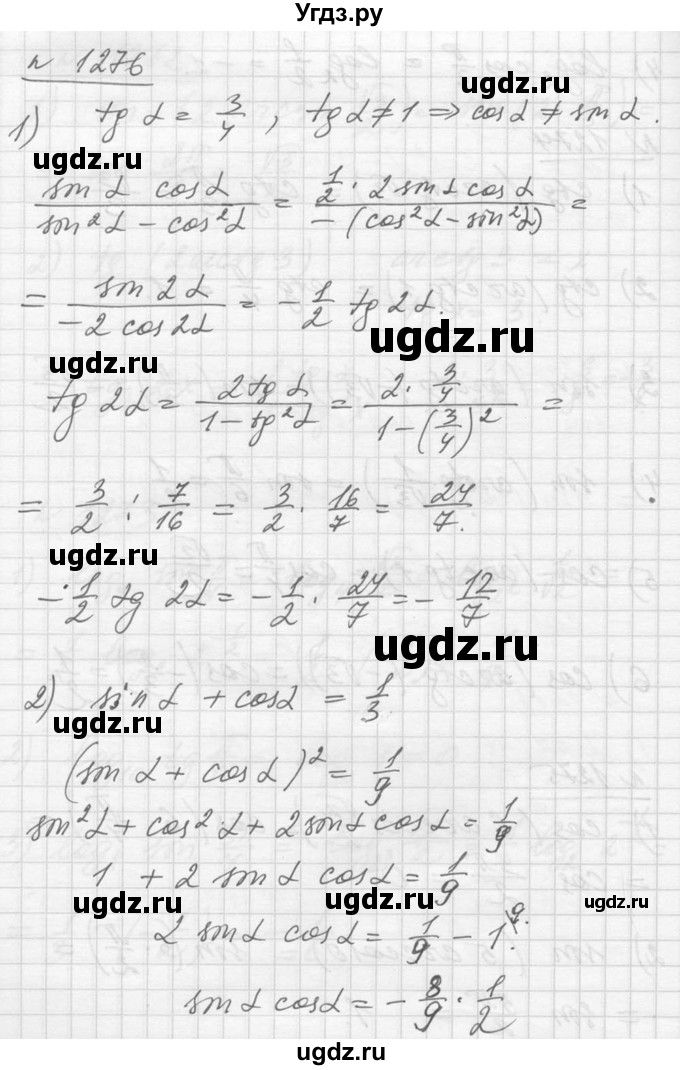 Угдз.ру
№ 1276
1) tg α = 3/4 , tg α ≠ 1 ⇒ cos α ≠ sin α .
ugdz.ru
ugdz.ru
(sin α cos α)/(sin²α – cos²α) = (1/2 · 2 sin α cos α)/(–(cos²α – sin²α)) =
= (sin 2α)/(–2 cos 2α) = – 1/2 tg 2α.
ugdz.ru
ugdz.ru
tg 2α = (2 tg α)/(1 – tg²α) = (2 · 3/4)/(1 – (3/4)²) =
= 3/2 : 7/16 = 3/2 · 16/7 = 24/7.
ugdz.ru
– 1/2 tg 2α = – 1/2 · 24/7 = – 12/7
ugdz.ru
2) sin α + cos α = 1/3
ugdz.ru
(sin α + cos α)² = 1/9
sin²α + cos²α + 2 sin α cos α = 1/9
1 + 2 sin α cos α = 1/9
ugdz.ru
ugdz.ru
2 sin α cos α = 1/9 – 1\9.
sin α cos α = – 8/9 · 1/2
ugdz.ru